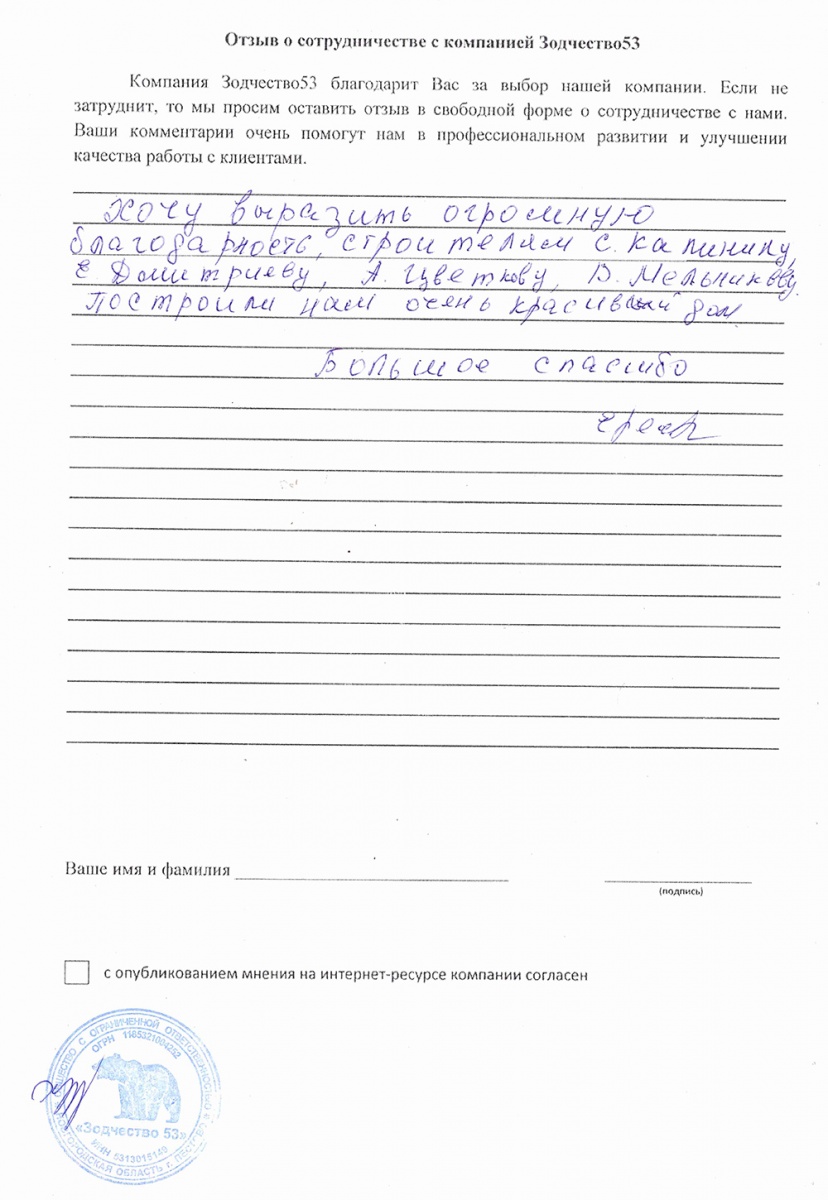 Отзыв о сотрудничестве с компанией Зодчество53
Компания Зодчество53 благодарит Вас за выбор нашей компании. Если не
затруднит, то мы просим оставить отзыв в свободной форме о сотрудничестве с нами.
Ваши комментарии очень помогут нам в профессиональном развитии и улучшении
качества работы с клиентами.
Хочу выразить огромную
благодарность, строителям С. Калинину,
Е. Домитриеву, А. Цветкову, В. Мельникову.
Построили нам очень красивый дом
Большое спасибо
Ваше имя и фамилия
(подпись)
с опубликованием мнения на интернет-ресурсе компании согласен
ОБЩЕСТВО С ОГРАНИЧЕННОЙ ОТВЕТСТВЕННОСТЬЮ
ОГРН 1185321004252
«Зодчество 53»
ИНН 5313015149
НОВГОРОДСКАЯ ОБЛАСТЬ г. ПЕСТОВО